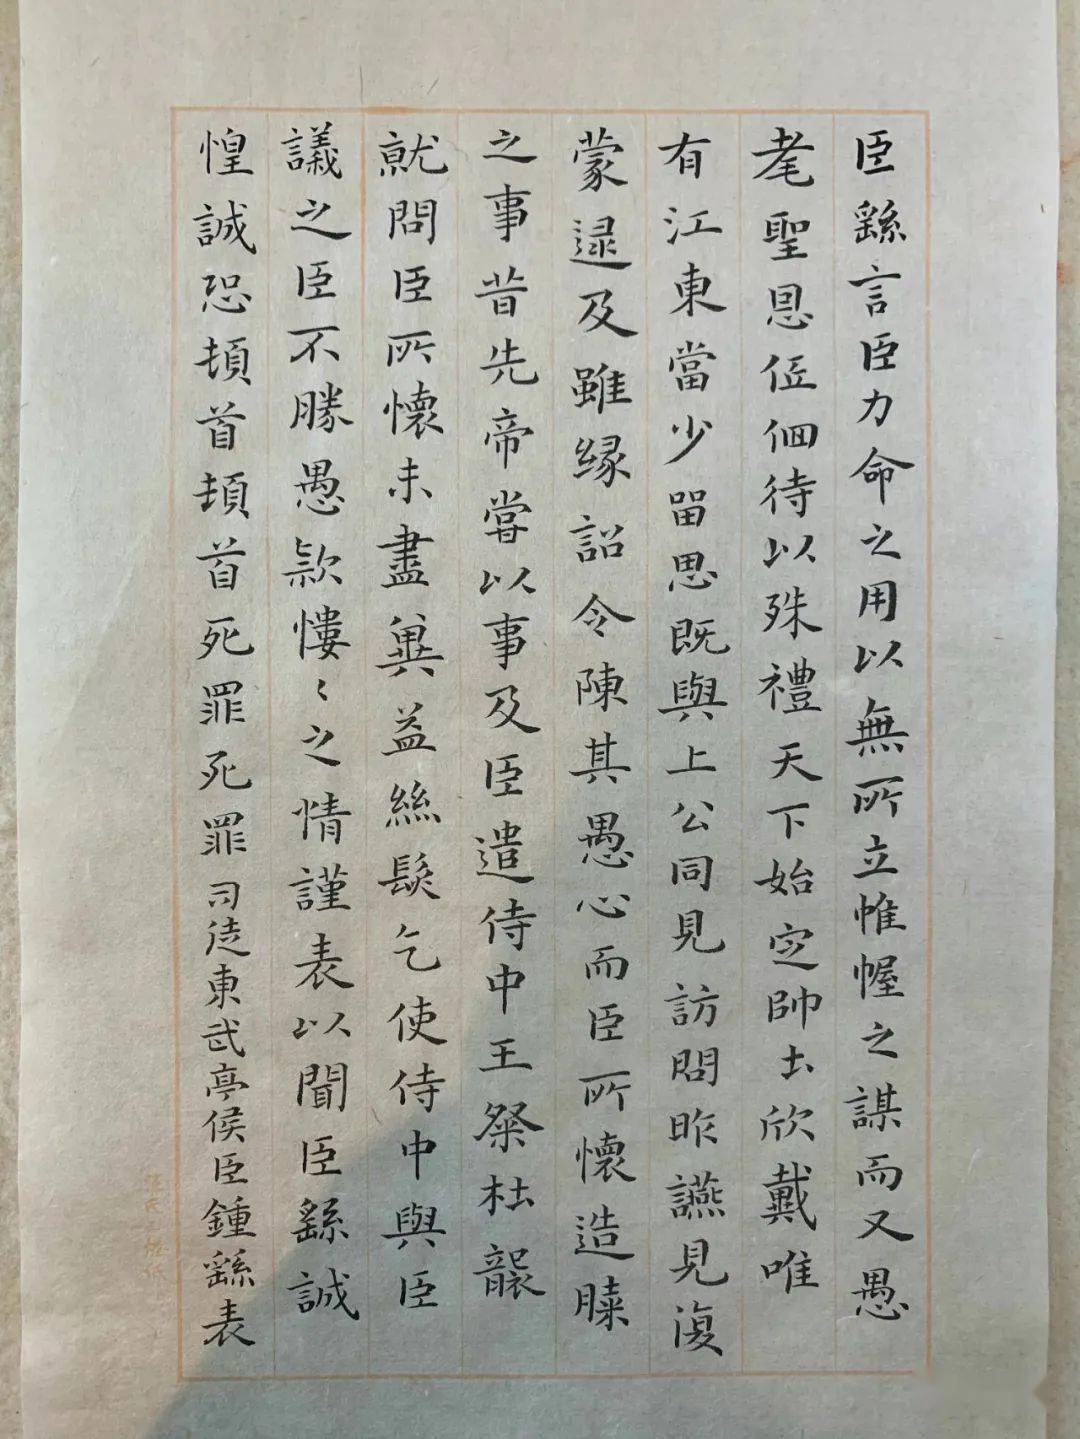 臣繇言臣力命之用以無所立帷幄之謀而又愚
耄聖恩低佪待以殊禮天下始定帥土欣戴唯
有江東當少留思既與上公同見訪問昨讌見復
蒙逯及雖緣詔令陳其愚心而臣所懷造膝
之事昔先帝嘗以事及臣遣侍中王粲杜襲
就問臣所懷未盡冀益絲髮乞使侍中與臣
議之臣不勝愚款慺〻之情謹表以聞臣繇誠
惶誠恐頓首頓首死罪死罪司徒東武亭侯臣鍾繇表